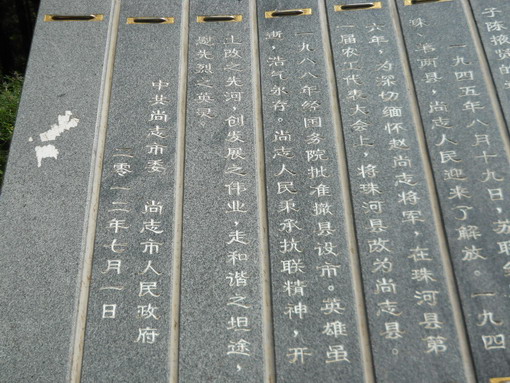 子陈掖
一九四五年八月十九日，苏联
珠、苇两县，尚志人民迎来了解放。一九四
六年，为深切缅怀赵尚志将军，在珠河县第
一届农工代表大会上，将珠河县改为尚志县。
一九八八年经国务院批准撤县设市。英雄虽
逝，浩气永存。尚志人民秉承抗联精神，开
土改之先河，创发展之伟业，走和谐之坦途，
慰先烈之英灵。
中共尚志市委 尚志市人民政府
二〇一二年七月一日